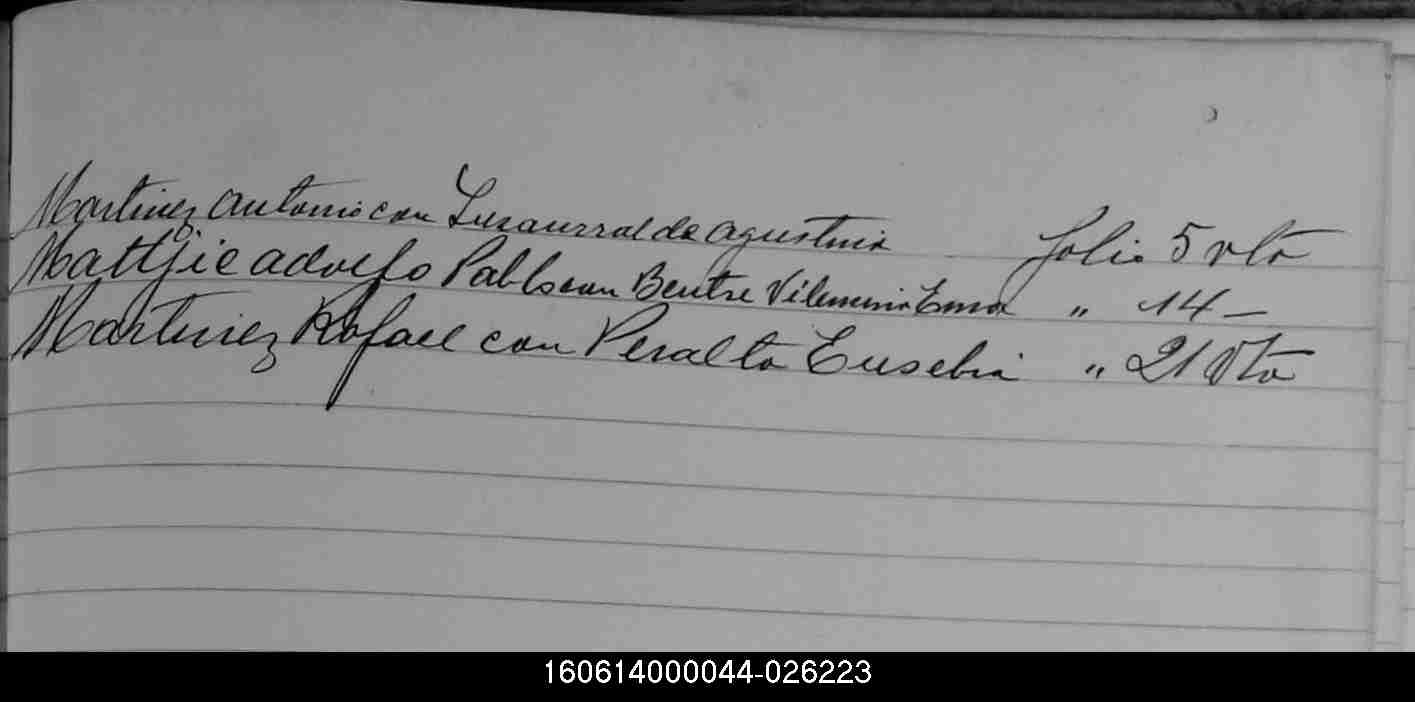 Martinez Antonio con Lusaurralde Agustina folio 5 vto
Adolfo Pablo con Vilemina Ema " 14 —
Martinez Rafael con Peralta Eusebia " 21 Vto
160614000044-026223